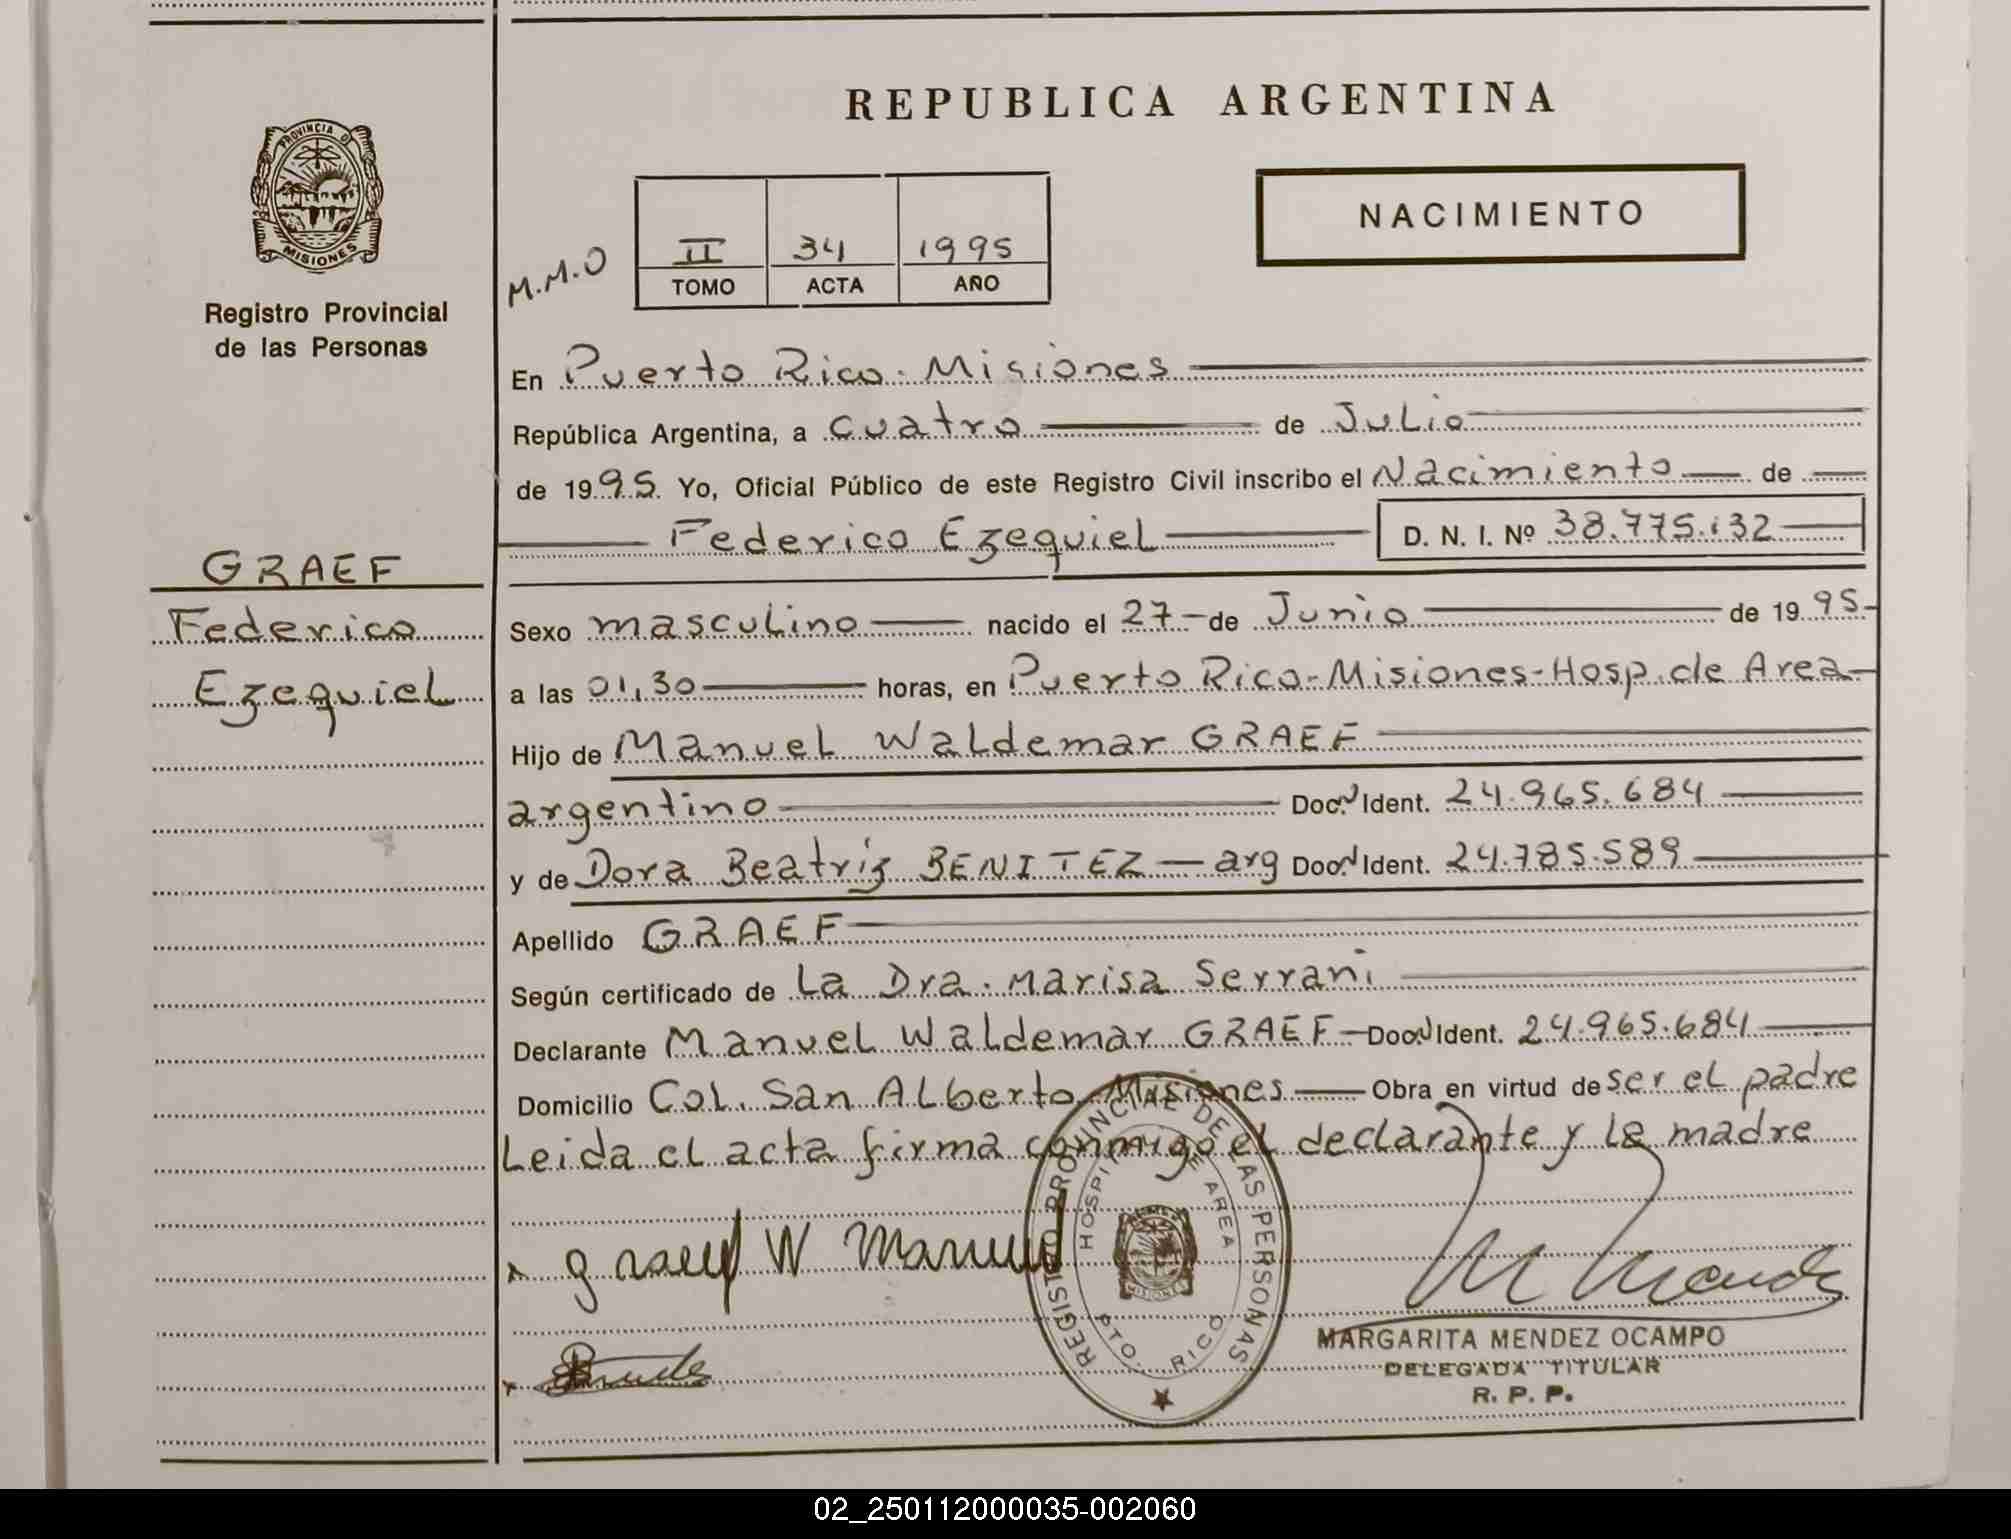 REPUBLICA ARGENTINA
PROVINCIA DE MISIONES
Registro Provincial
de las Personas
M.M.O
II 34 1995
TOMO ACTA AÑO
NACIMIENTO
En Puerto Rico - Misiones
República Argentina, a cuatro de Julio
de 1995. Yo, Oficial Público de este Registro Civil inscribo el Nacimiento de
Federico Ezequiel D. N. I. Nº 38.775.132
GRAEF
Federico
Ezequiel
Sexo masculino nacido el 27 - de Junio de 1995-
a las 01,30 horas, en Puerto Rico-Misiones-Hosp. de Area-
Hijo de Manuel Waldemar GRAEF
argentino Doc. Ident. 24.965.684
y de Dora Beatriz BENITEZ - arg Doc. Ident. 24.785.589
Apellido GRAEF
Según certificado de La Dra. Marisa Serrani
Declarante Manuel Waldemar GRAEF - Doc. Ident. 24.965.684
Domicilio Col. San Alberto-Misiones Obra en virtud de ser el padre
Leida el acta firma conmigo el declarante y la madre
x graef W Manuel
REGISTRO PROVINCIAL DE LAS PERSONAS
HOSPITAL DE AREA
PTO. RICO
MARGARITA MENDEZ OCAMPO
DELEGADA TITULAR
R. P. P.
02_250112000035-002060